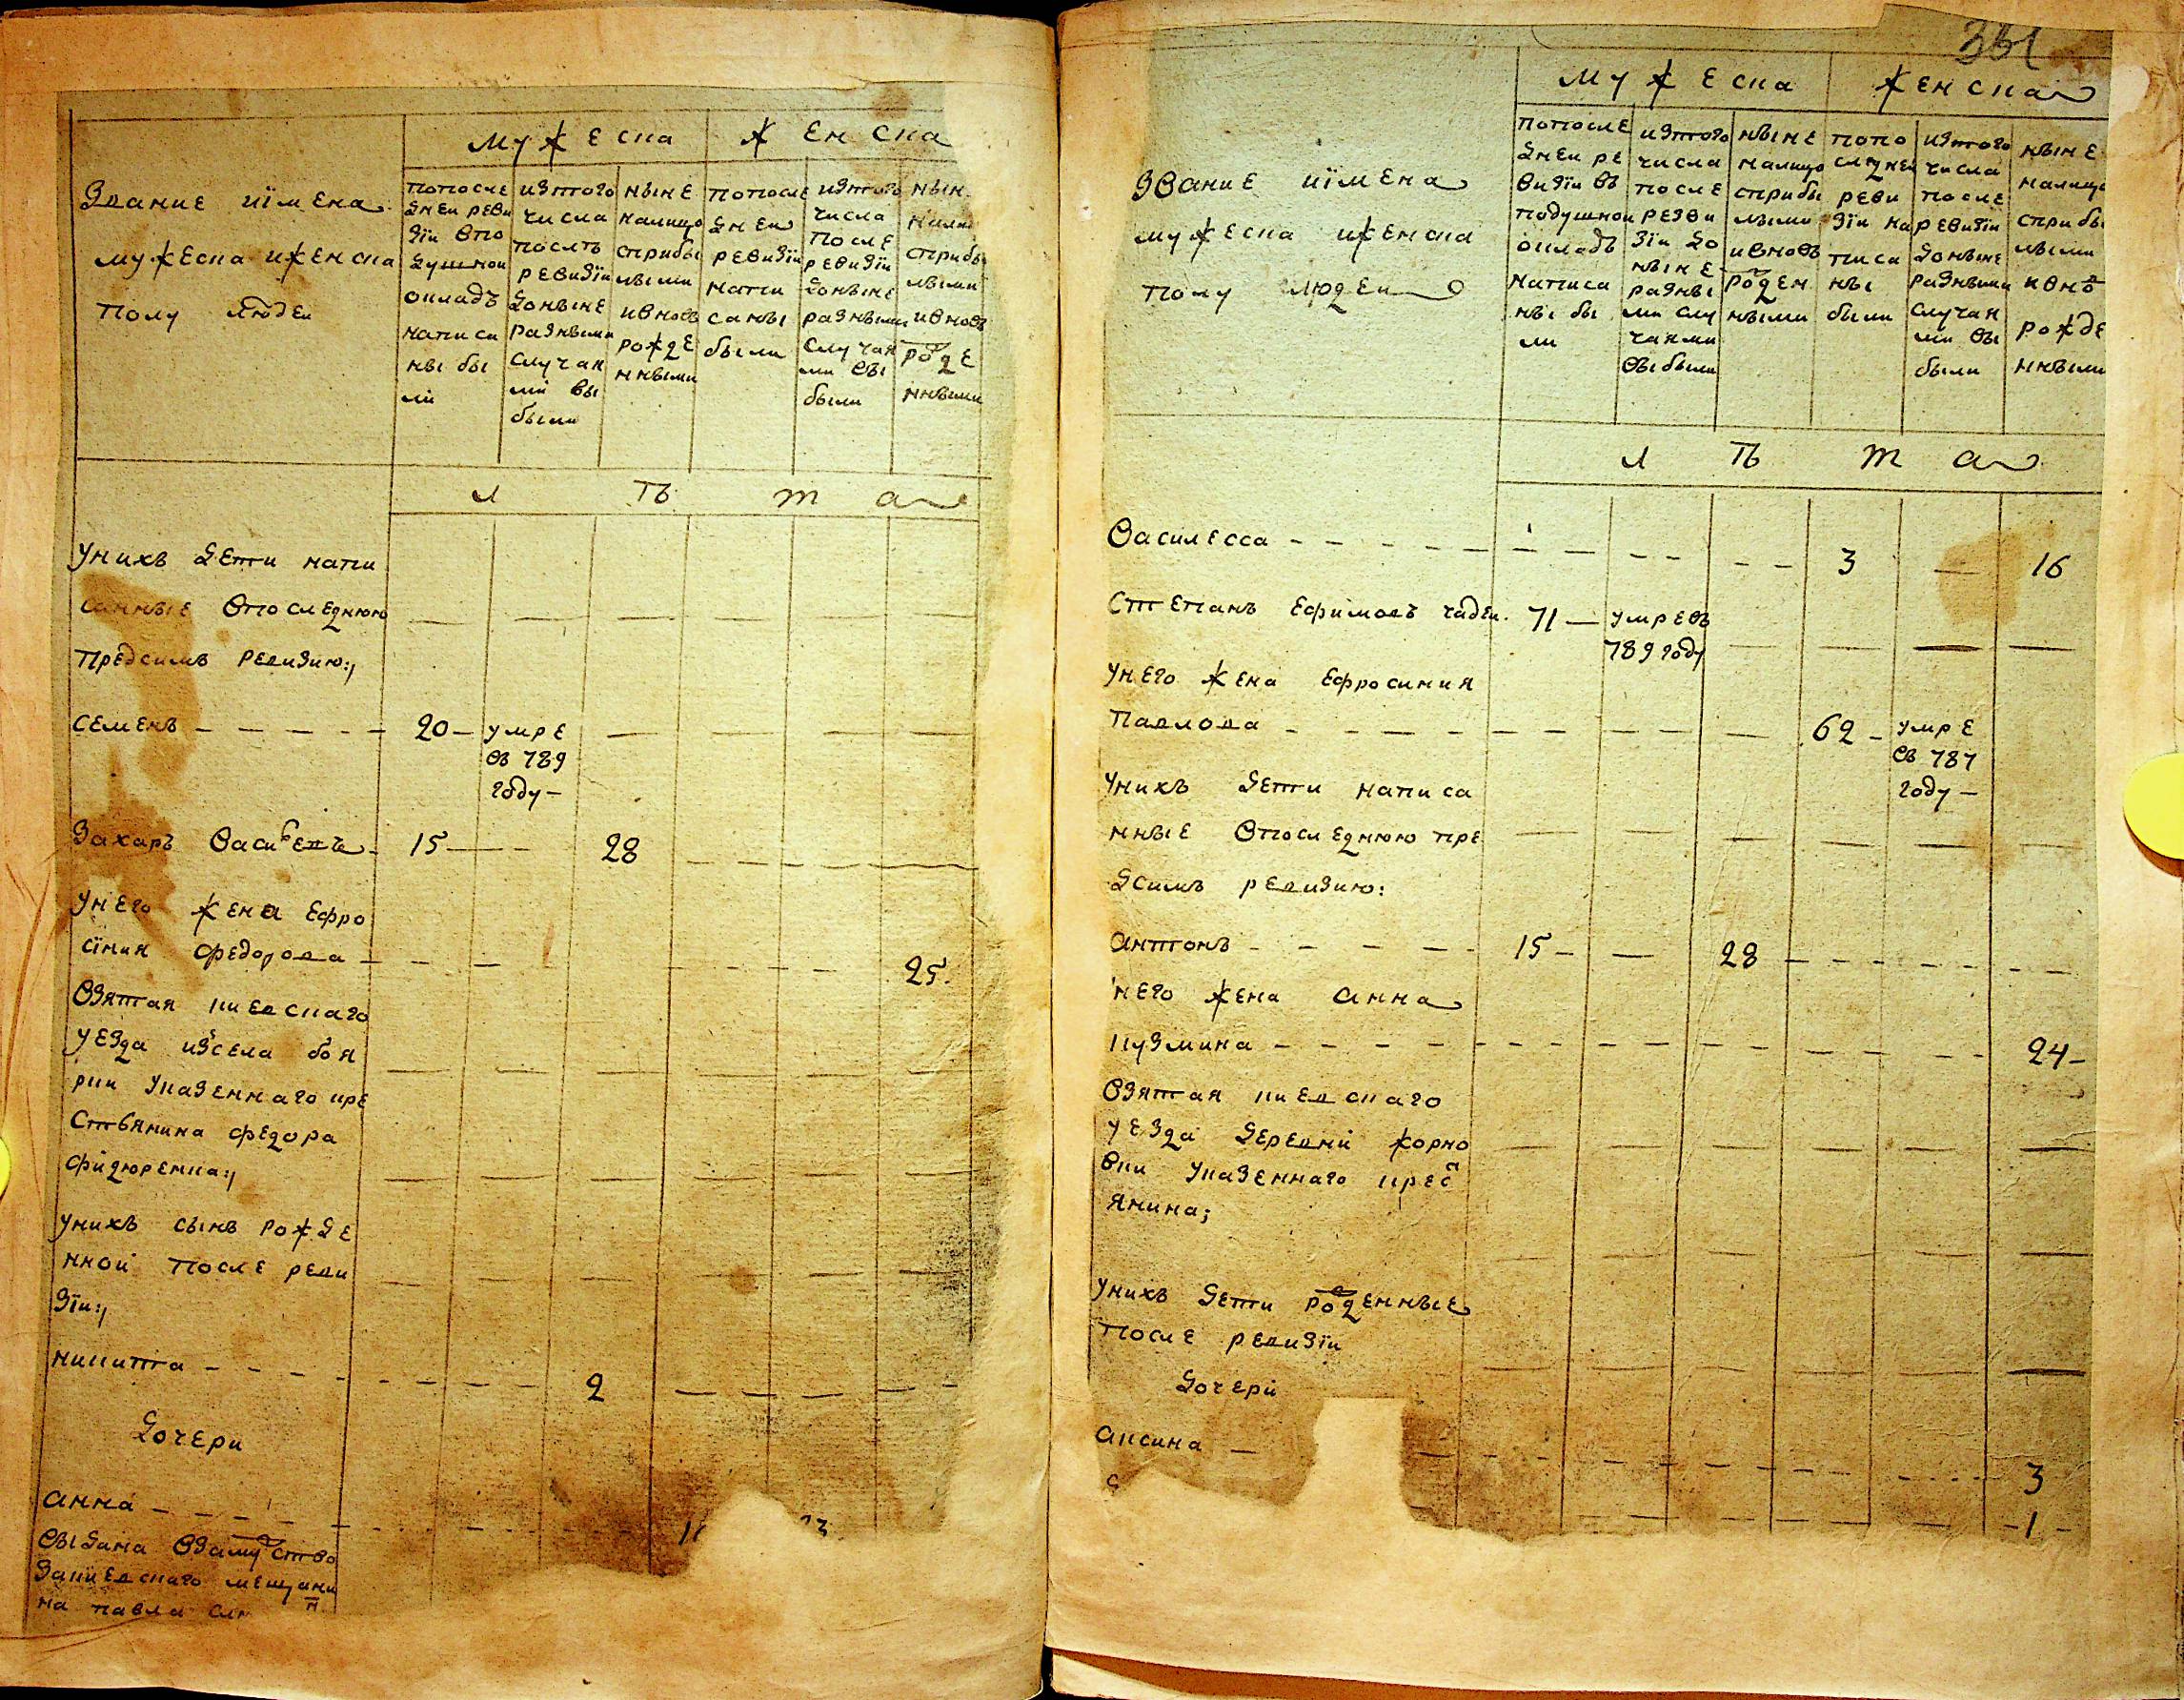 мужеска женска
Звание иїмена
мужеска иженска
полу людеи
попосле
днеи реви
зїи впо
душнои
окладъ
написа
ны бы
ли
изтого
числа
послѣ
ревизїи
доныне
разными
случая
ми вы
были
ныне
налицо
сприбы
лыми
ивновь
рожде
нными
попосле
днеи
ревизїи
напи
саны
были
изтого
числа
после
ревизїи
доныне
разными
случая
ми вы
были
нын
нали
сприбы
лыми
ивновь
рожде
нными
л ѣ т а
Унихъ дети напи
санные впоследнюю
предсимъ ревизию:/
семенъ 20 умре
въ 789
году
Захаръ Васильевъ 15 28
унего жена Ефро
сїния Федорова 25.
Взятая киевскаго
уезда изсела боя
рки указеннаго кре
стьянина федора
фидюренка:/
унихъ сынъ рожде
нной после реви
зїи:/
никита 2
дочери
анна
выдана взамужство
закиевскаго мещани
на павла
351
мужеска женска
Звание иїмена
мужеска иженска
полу людеи
попосле
днеи ре
визїи въ
подушнои
окладъ
написа
ны бы
ли
изтого
числа
после
ревизїи до
ныне
разны
ми слу
чаями
выбыли
ныне
налицо
сприбы
лыми
ивновь
рожден
ными
попо
следнеи
реви
зїи на
писа
ны
были
изтого
числа
после
ревизїи
доныне
разными
случая
ми вы
были
ныне
налицо
сприбы
лыми
ивно
рожде
нными
л ѣ т а
Василесса 3 16
Степанъ Ефимовъ 71 умревъ
789 году
Унего жена Ефросиния
Павлова 62 умре
въ 787
году
Унихъ дети написа
нные впоследнюю пре
дсимъ ревизию:
антонъ 15 28
него жена анна
кузмина 24
Взятая киевскаго
уезда деревни жорно
вки указеннаго крест
янина;
Унихъ дети рожденные
после ревизїи
дочери
аксина 3
1